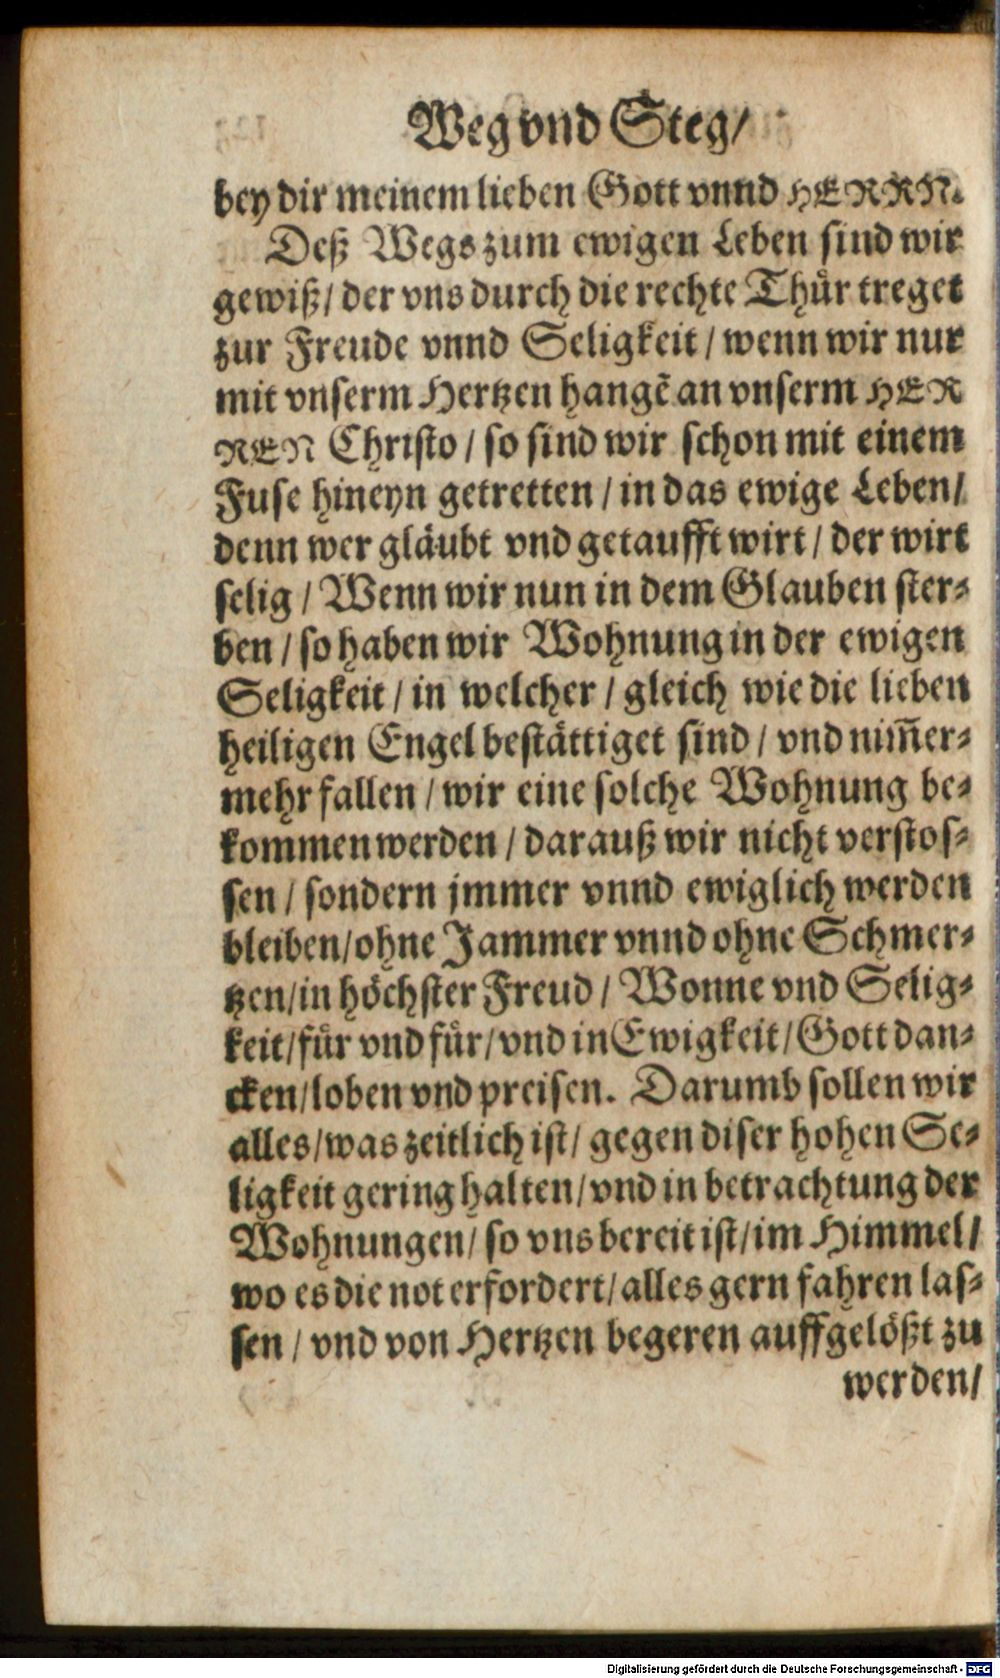 Weg vnd Steg/
bey dir meinem lieben Gott vnnd HERRN.
Deß Wegs zum ewigen Leben sind wir
gewiß/ der vns durch die rechte Thuͤr treget
zur Freude vnnd Seligkeit / wenn wir nur
mit vnserm Hertzen hangē an vnserm HER
REN Christo / so sind wir schon mit einem
Fuse hineyn getretten / in das ewige Leben/
denn wer glaͤubt vnd getaufft wirt / der wirt
selig / Wenn wir nun in dem Glauben ster⸗
ben / so haben wir Wohnung in der ewigen
Seligkeit / in welcher / gleich wie die lieben
heiligen Engel bestaͤttiget sind / vnd nim̃er⸗
mehr fallen / wir eine solche Wohnung be⸗
kommen werden / darauß wir nicht verstos⸗
sen / sondern jmmer vnnd ewiglich werden
bleiben/ohne Jammer vnnd ohne Schmer⸗
tzen/in hoͤchster Freud / Wonne vnd Selig⸗
keit/fuͤr vnd fuͤr/vnd in Ewigkeit/Gott dan⸗
cken/loben vnd preisen. Darumb sollen wir
alles/was zeitlich ist/ gegen diser hohen Se⸗
ligkeit gering halten/vnd in betrachtung der
Wohnungen/ so vns bereit ist/im Himmel/
wo es die not erfordert/alles gern fahren las⸗
sen / vnd von Hertzen begeren auffgeloͤßt zu
werden/
Digitalisierung gefördert durch die Deutsche Forschungsgemeinschaft - DFG